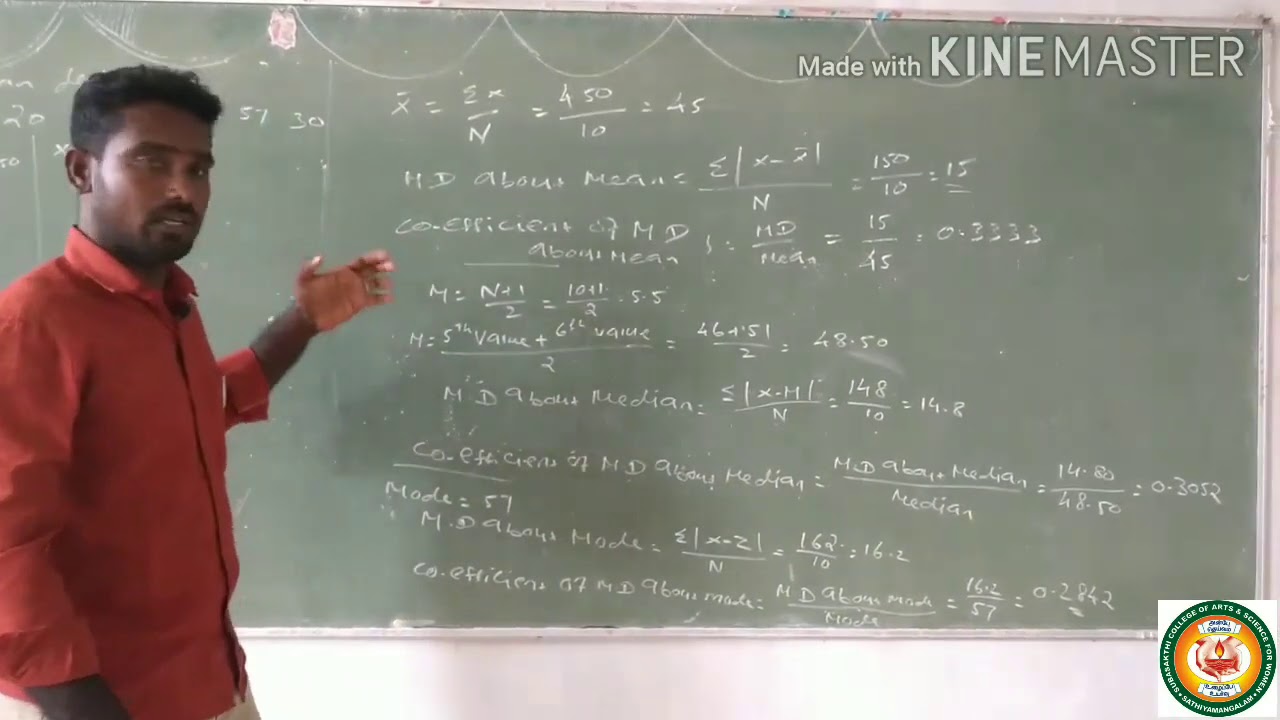 Made with KINEMASTER
20
57 30
50 x
x̄ = Σx/N = 450/10 = 45
MD about Mean = Σ|x-x̄|/N = 150/10 = 15
Co-efficient of MD about Mean } = MD/Mean = 15/45 = 0.3333
M = N+1/2 = 10+1/2 = 5.5
M = 5th Value + 6th value/2 = 46+51/2 = 48.50
MD about Median = Σ|x-M|/N = 148/10 = 14.8
Co-efficient of MD about Median = M.D about Median/Median = 14.80/48.50 = 0.3052
Mode = 57
M.D about Mode = Σ|x-Z|/N = 162/10 = 16.2
Co-efficient of MD about mode = MD about mode/Mode = 16.2/57 = 0.2842
SUBASAKTHI COLLEGE OF ARTS & SCIENCE FOR WOMEN
SATHIYAMANGALAM